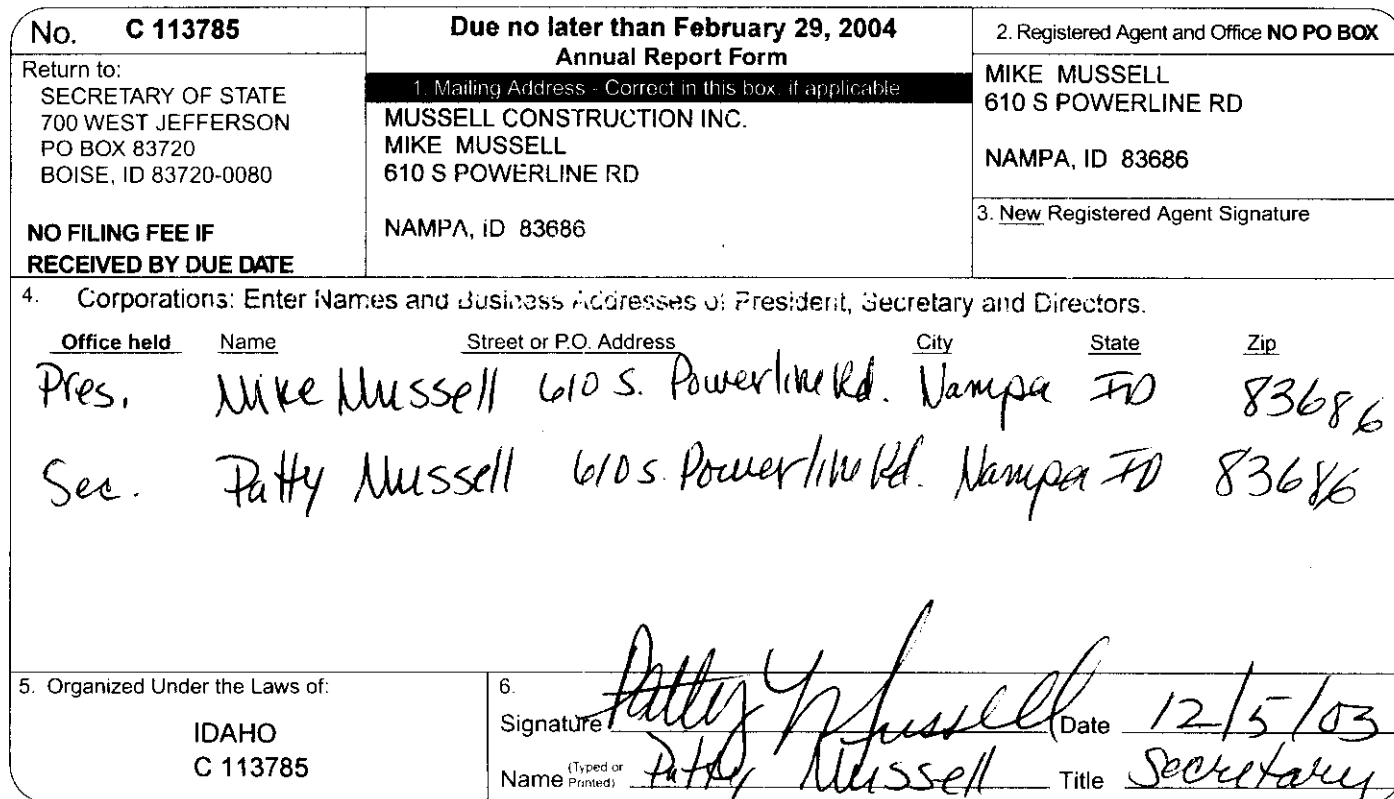 No. C 113785
Return to:
SECRETARY OF STATE
700 WEST JEFFERSON
PO BOX 83720
BOISE, ID 83720-0080
NO FILING FEE IF
RECEIVED BY DUE DATE
Due no later than February 29, 2004
Annual Report Form
1. Mailing Address - Correct in this box, if applicable
MUSSELL CONSTRUCTION INC.
MIKE MUSSELL
610 S POWERLINE RD
NAMPA, ID 83686
2. Registered Agent and Office NO PO BOX
MIKE MUSSELL
610 S POWERLINE RD
NAMPA, ID 83686
3. New Registered Agent Signature
4. Corporations: Enter Names and Business Addresses of President, Secretary and Directors.
Office held Name Street or P.O. Address City State Zip
Pres. Mike Mussell 610 S. Powerline Rd. Nampa ID 83686
Sec. Patty Mussell 610 S. Powerline Rd. Nampa ID 83686
5. Organized Under the Laws of:
IDAHO
C 113785
6.
Signature Patty Mussell Date 12/5/03
Name (Typed or Printed) Patty Mussell Title Secretary